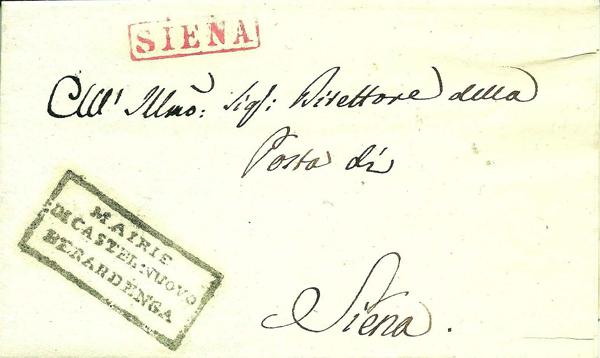 SIENA
All' Illmo: Sigr: Direttore della
Posta di
Siena.
MAIRIE
DI CASTELNUOVO
BERARDENGA